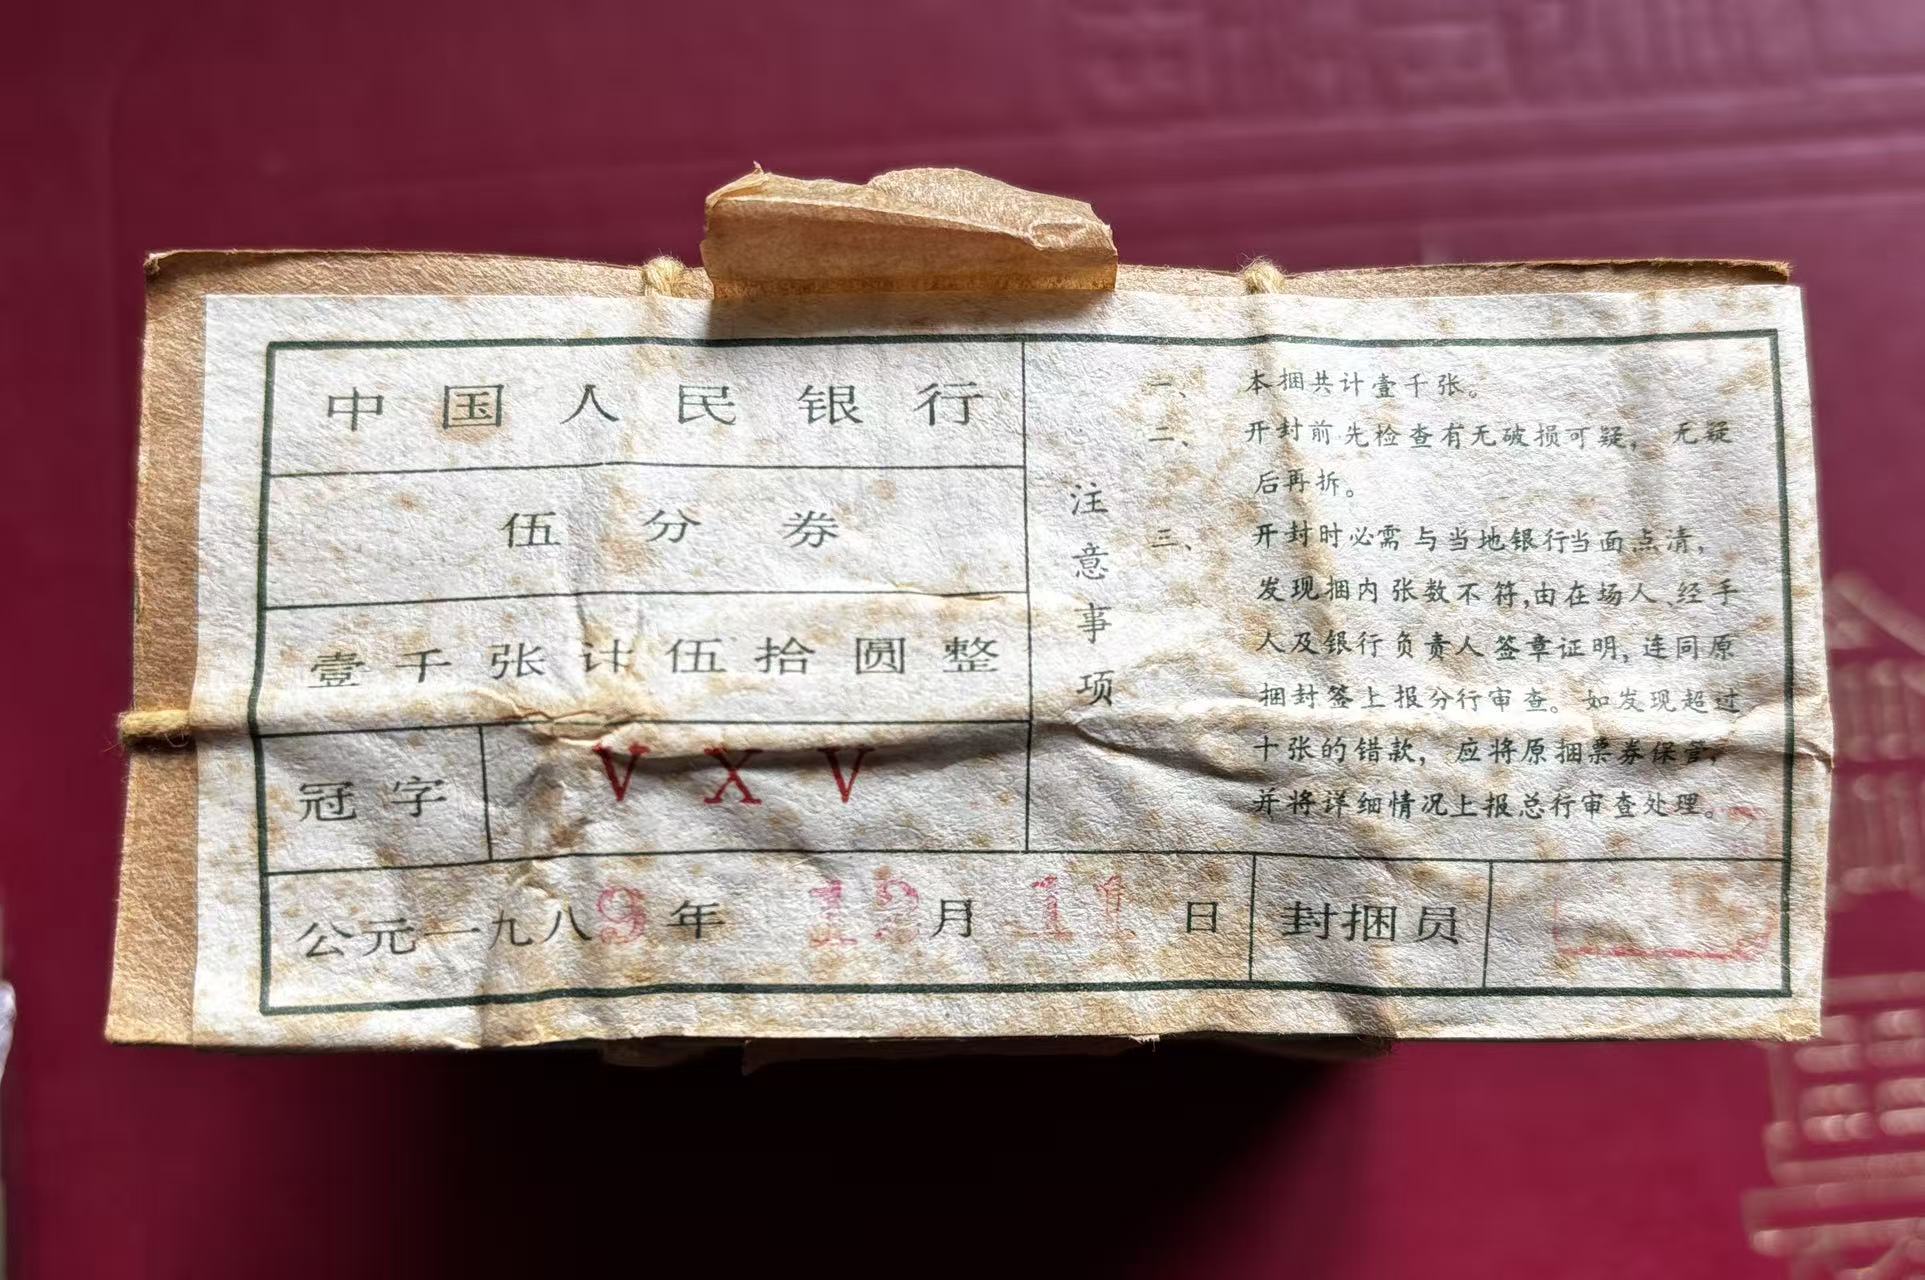 中国人民银行
伍分券
壹千张计伍拾圆整
冠字 VXV
注意事项
一、本捆共计壹千张。
二、开封前先检查有无破损可疑，无疑
后再拆。
三、开封时必需与当地银行当面点清，
发现捆内张数不符,由在场人、经手
人及银行负责人签章证明,连同原
捆封签上报分行审查。如发现超过
十张的错款，应将原捆票券保管，
并将详细情况上报总行审查处理。
公元一九八9年 12月 11日 封捆员